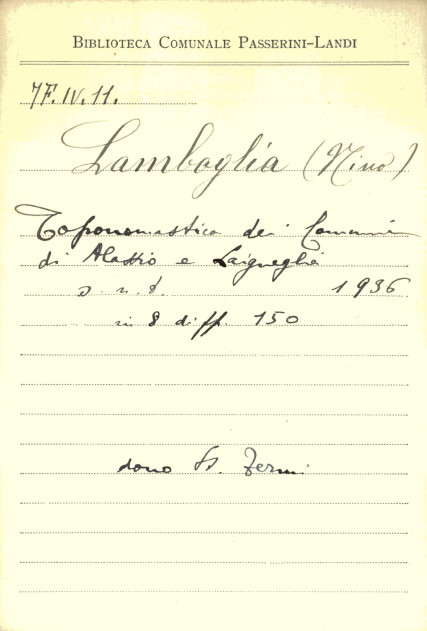 BIBLIOTECA COMUNALE PASSERINI-LANDI
7F.IV.11.
Lamboglia (Nino)
Toponomastica dei Comuni
di Alassio e Laigueglia
s. n. t. 1936
in 8 di pp. 150
dono St. Fermi